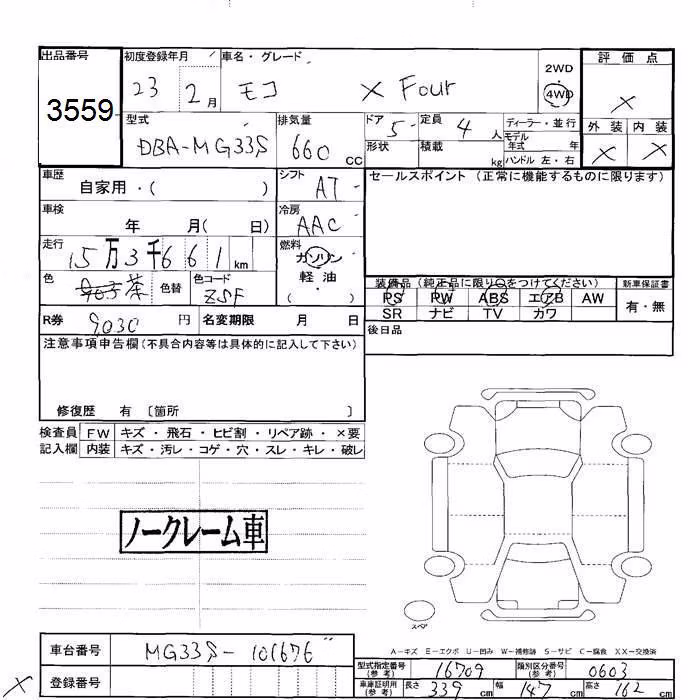 出品番号 初度登録年月 車名・グレード 評価点
3559 23 2月 モコ X Four 2WD 4WD X
型式 排気量 ドア 定員 ディーラー・並行 外装 内装
DBA-MG33S 660 CC 5 4人 モデル年式 年 X X
形状 積載 kg ハンドル 左・右
車歴 シフト セールスポイント (正常に機能するものに限ります)
自家用・( ) AT
車検 冷房
年 月( 日) AAC
走行 燃料
15万3千661km ガソリン
色 茶 色替 色コード ZSF 軽油
( )
装備品 (純正品に限り○をつけてください) 新車保証書
PS PW ABS エアB AW 有・無
SR ナビ TV カワ
R券 9030 円 名変期限 月 日
後日品
注意事項申告欄(不具合内容等は具体的に記入して下さい)
修復歴 有 〔箇所 〕
検査員 FW キズ・飛石・ヒビ割・リペア跡・×要
記入欄 内装 キズ・汚レ・コゲ・穴・スレ・キレ・破レ
ノークレーム車
スペア
A-キズ E-エクボ U-凹み W-補修跡 S-サビ C-腐食 XX-交換済
車台番号 MG33S-101676
型式指定番号(参考) 16709 類別区分番号(参考) 0603
X 登録番号
車庫証明用(参考) 長さ 339 cm 幅 147 cm 高さ 162 cm